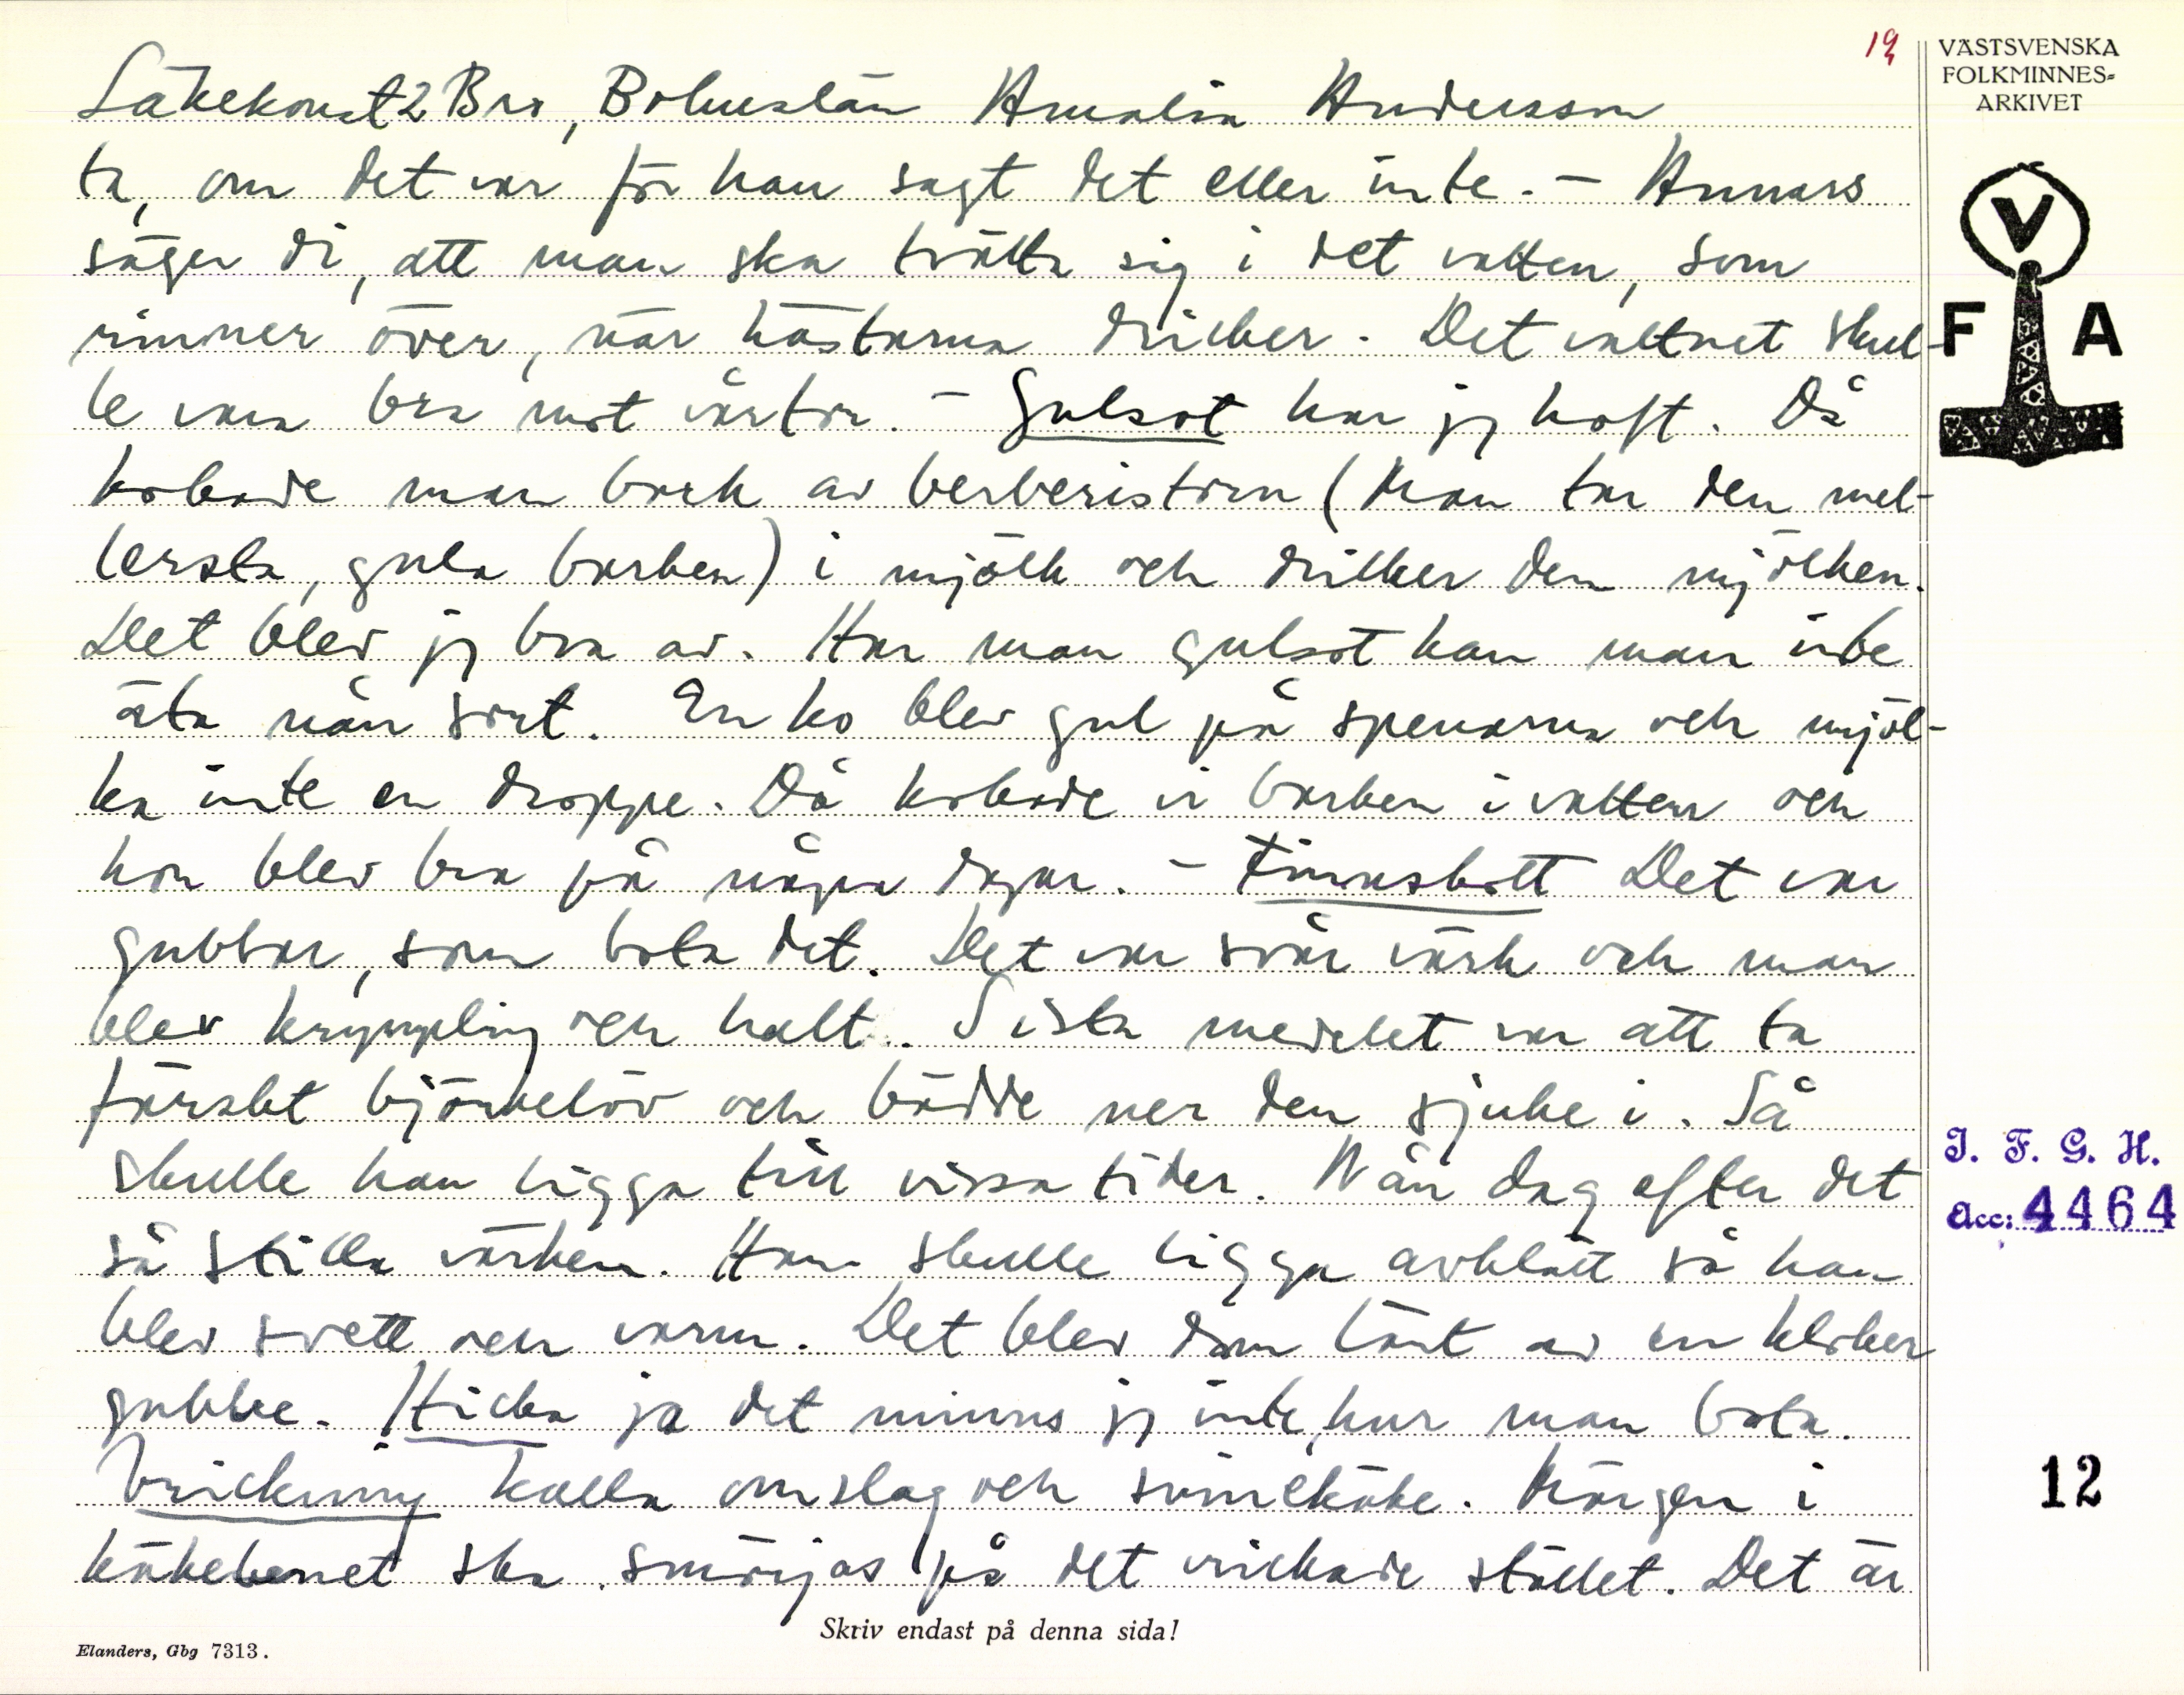 19
VÄSTSVENSKA
FOLKMINNES=
ARKIVET
Läkekonst 2 Bro, Bohuslän Amalia Andersson
ta, om det var för han sagt det eller inte. – Annars
säger di, att man ska tvätta sig i det vatten, som
rinner över, när hästarna dricker. Det vattnet skul-
le vara bra mot vårtor. – Gulsot har jag haft. Då
kokade man bark av berberistörn (Man tar den mel-
lersta, gula barken) i mjölk och dricker den mjölken.
Det blev jag bra av. Har man gulsot kan man inte
äta nån sort. En ko blev gul på spenarna och mjöl-
ka inte en droppe. Då kokade vi barken i vatten och
hon blev bra på några dagar. – Finnskott Det var
gubbar, som bota det. Det var svår värk och man
blev krympling och halt. Sista medelet var att ta
färskt björkelöv och bädde ner den sjuke i. Så
skulle han ligga till vissa tider. Nån dag efter det
så stilla värken. Han skulle ligga avklätt så han
blev svett och varm. Det blev dom lärt av en kloker
gubbe. Hicka ja det minns jag inte, hur man bota.
Vrickning kalla omslag och svinekäke. Märgen i
käkebenet ska smörjas på det vrickade stället. Det är
V
F A
I. F. G. H.
Acc: 4464
12
Skriv endast på denna sida!
Elanders, Gbg 7313.